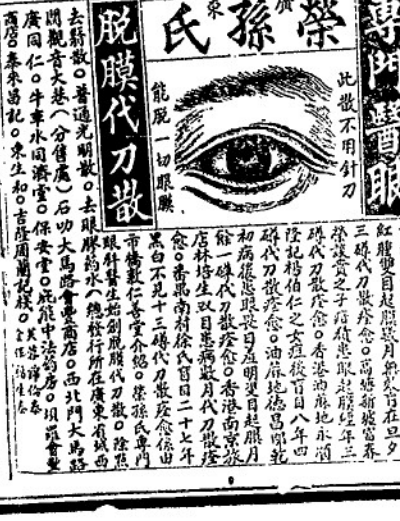 專門醫眼
廣東
榮孫氏
此散不用針刀
能脫一切眼膜
脫膜代刀散
紅腫雙目起膜數月無數盲在旦夕
三磚代刀散痊愈○高塘新墟富春
榮議員之子疳積患眼起膜經年三
磚代刀散痊愈○香港油麻地永順
隆記楊伯仁之女痘後盲目八年四
磚代刀散痊愈○油麻地德昌郎乾
初病後患眼畏日羞明雙目起膜月
餘一磚代刀散痊愈○香港南京旅
店林培生双目患病數月代刀散痊
愈○番禺南村徐氏盲目二十七年
黑白不見十三磚代刀散痊愈係由
市橋數仁善堂介紹○榮孫氏專門
眼科醫生始創脫膜代刀散○除熱
去翳散○普通光明散○去眼膜葯水（總發行所在廣東省城西
關觀音大巷（分售處）石叻大馬路會豐商店○西北門大馬路
廣同仁○牛車水同濟堂○保安堂○庇能中法葯房○壩羅會豐
商店○泰來昌記○東生和○吉隆周蘭記棧○芙蓉譚伯泰